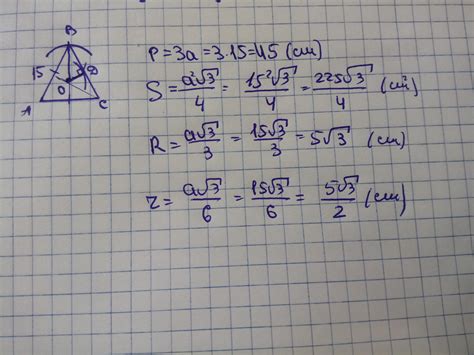 B
15
O
A
C
P = 3a = 3·15 = 45 (см)
S = a²√3/4 = 15²√3/4 = 225√3/4 (см²)
R = a√3/3 = 15√3/3 = 5√3 (см)
r = a√3/6 = 15√3/6 = 5√3/2 (см)